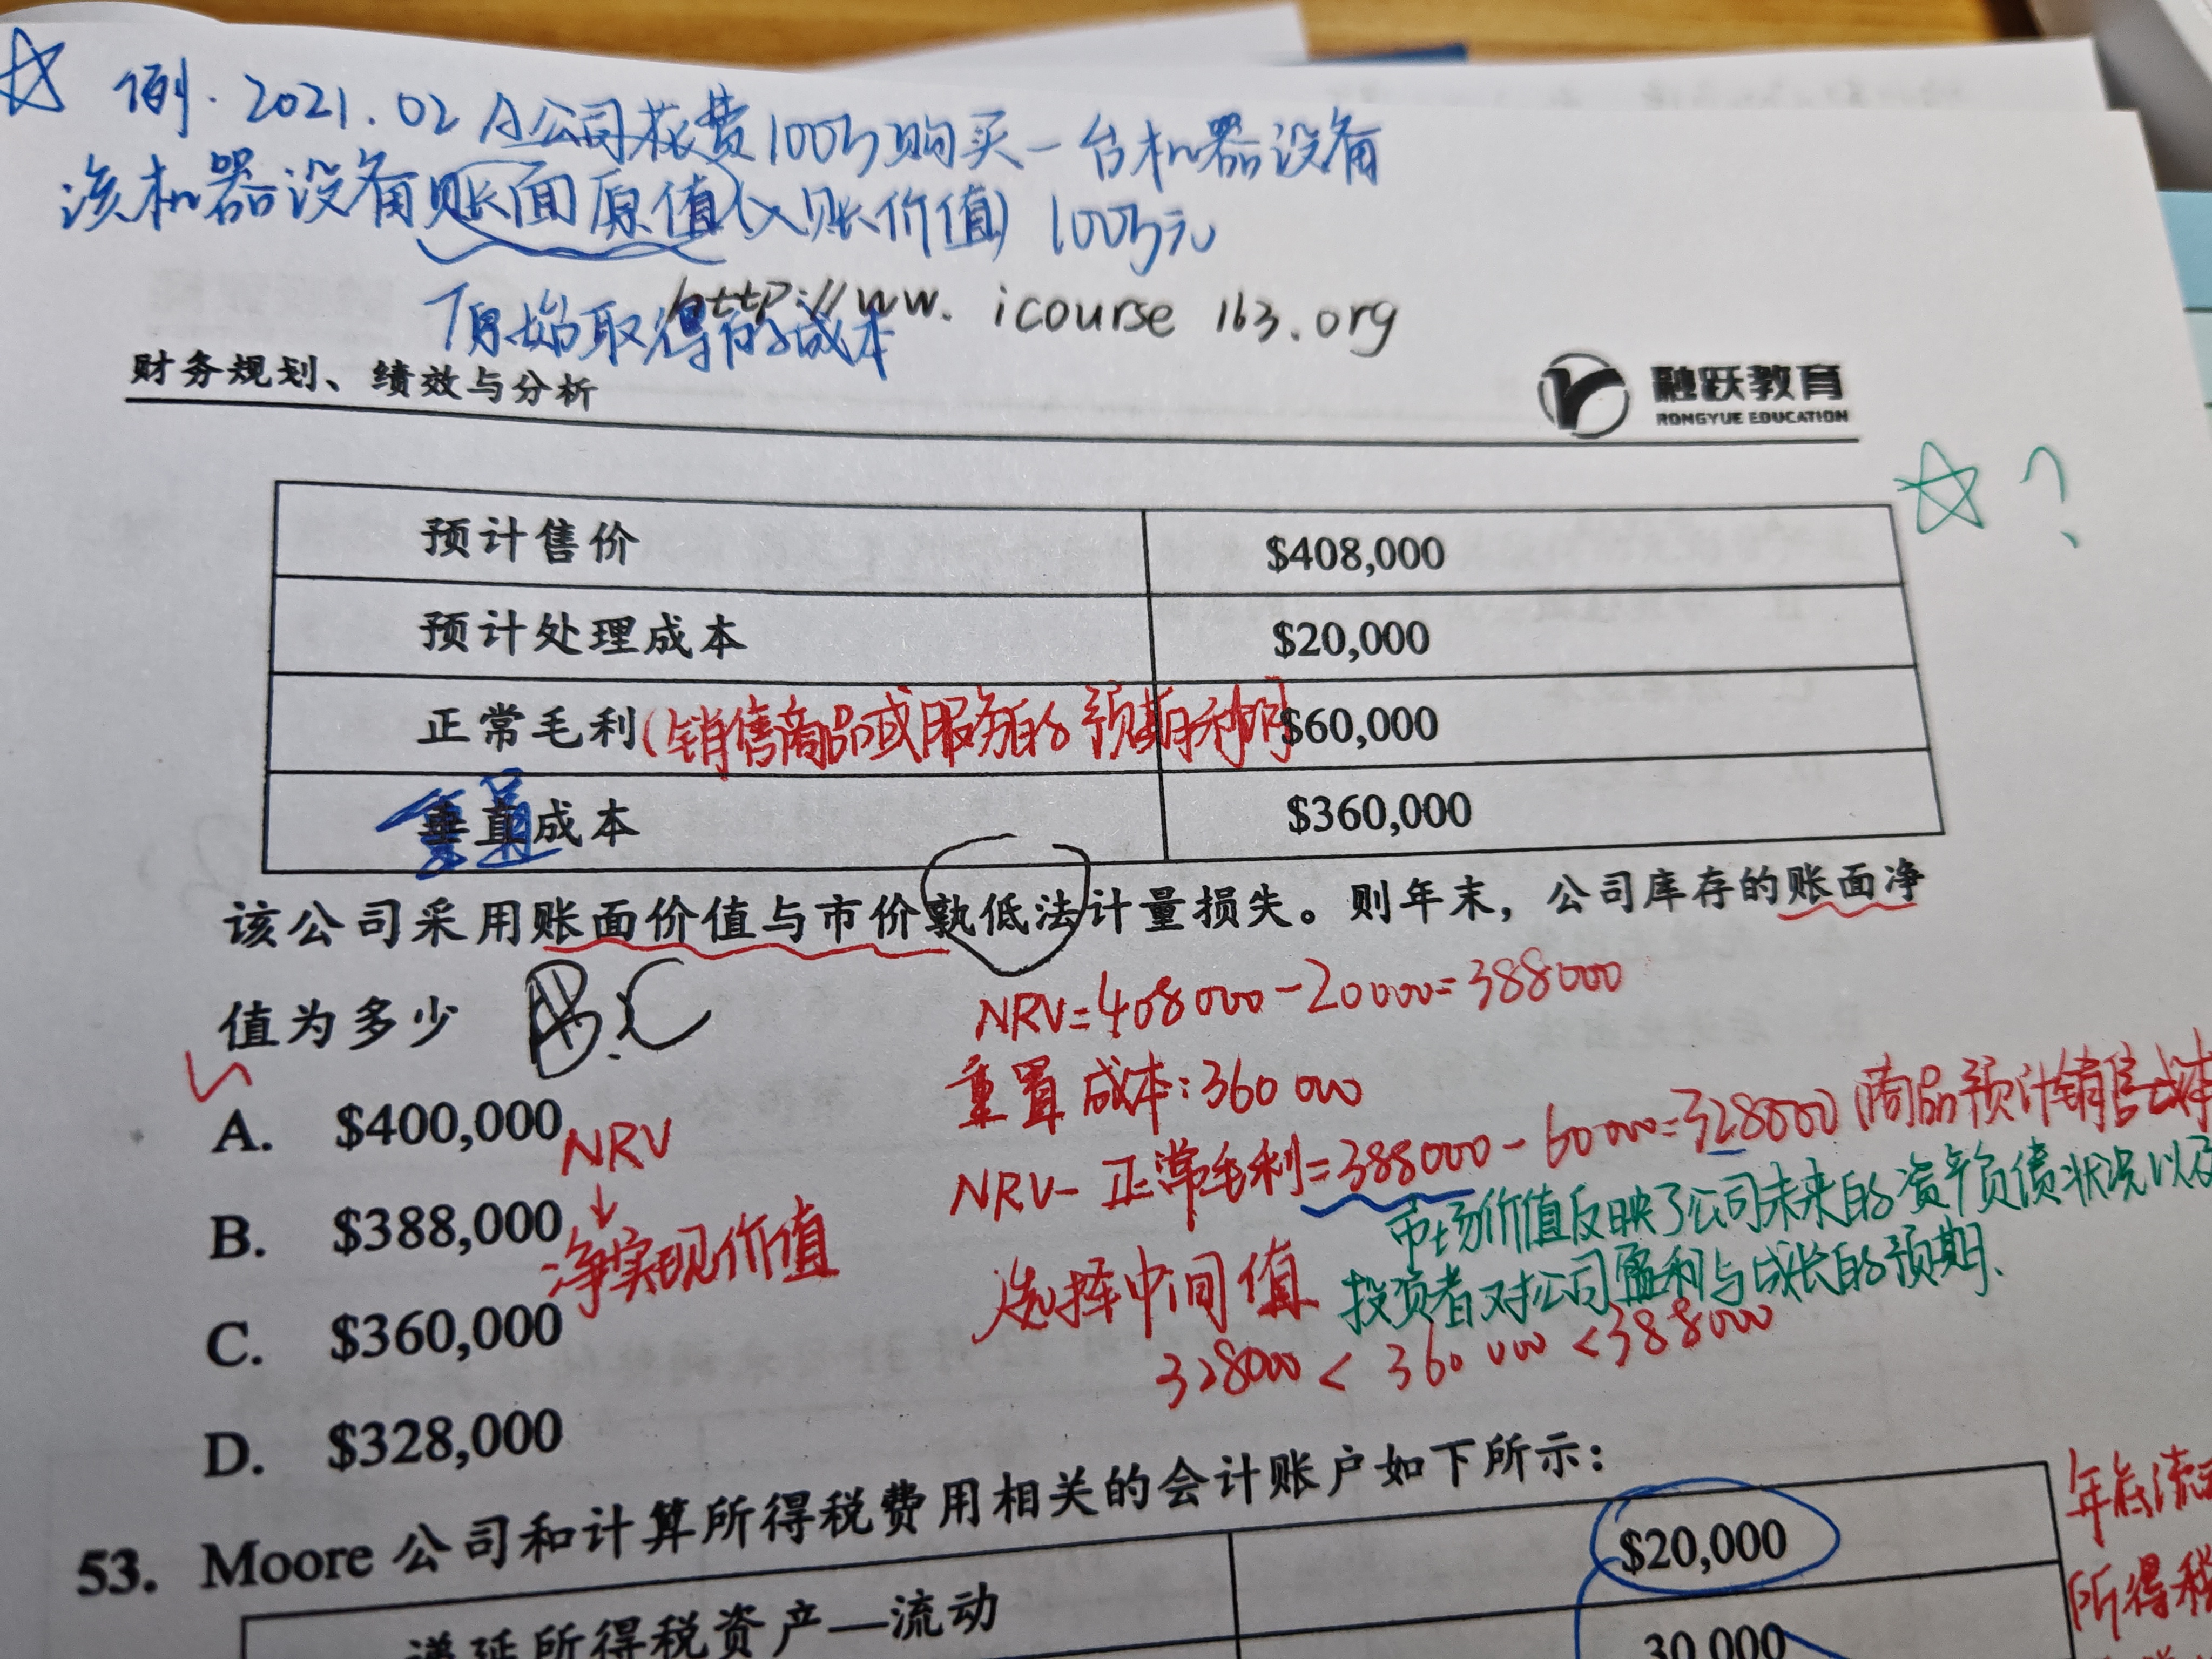 例. 2021.02 A公司花费100万购买一台机器设备
该机器设备账面原值(入账价值) 100万元
原始取得的成本
http://ww. icourse 163.org
财务规划、绩效与分析
融跃教育
RONGYUE EDUCATION
?
预计售价 $408,000
预计处理成本 $20,000
正常毛利(销售商品或服务的预期利润) $60,000
重置成本 $360,000
该公司采用账面价值与市价孰低法计量损失。则年末，公司库存的账面净
值为多少 B.C
NRV=408000-20000=388000
重置成本:360000
NRV-正常毛利=388000-60000=328000(商品预计销售成本
市场价值反映了公司未来的资产负债状况以及
投资者对公司盈利与成长的预期.
选择中间值
328000<360000<388000
A. $400,000
NRV
↓
净实现价值
B. $388,000
C. $360,000
D. $328,000
53. Moore 公司和计算所得税费用相关的会计账户如下所示：
递延所得税资产—流动 $20,000
30,000
年底流
所得税